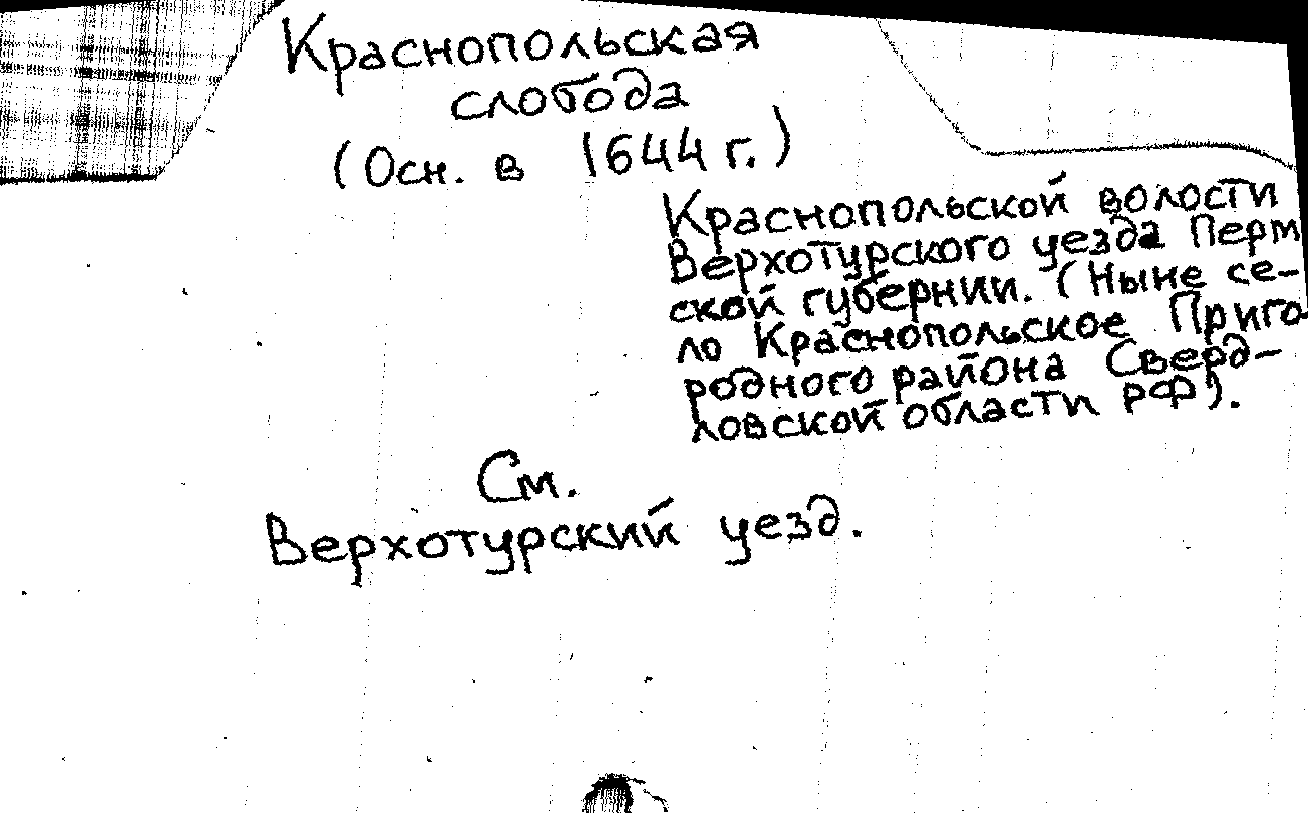 Краснопольская
слобода
(Осн. в 1644 г.)
Краснопольской волости
Верхотурского уезда Перм
ской губернии. (Ныне се-
ло Краснопольское Приго
родного района Сверд-
ловской области РФ).
См.
Верхотурский уезд.